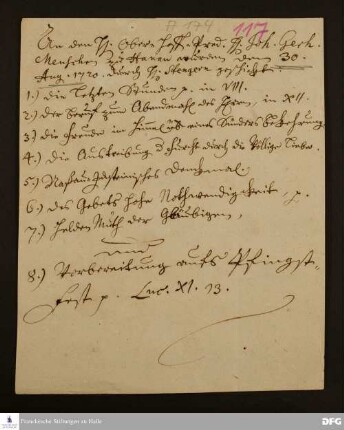 117
An den H. Obern Hoff-Pred. H. Joh. Gerh.
Meuschen zu Hanau wurden den 30.
Aug. 1720. durch H. geschickt
1.) die letzten Stunden p. in VIII.
2.) der Beruf zum Abendmahl des Herrn, in XII.
3.) die Freude im Himel über eines Sünders bekehrung
4.) die Austreibung d. Furcht durch die völlige Liebe.
5.) Nassau Denckmal.
6.) des Gebets hohe Nothwendigkeit, p.
7.) Helden Muth der Gläubigen,
und
8.) Vorbereitung aufs Pfingst-
fest p. Luc. XI. 13.
Franckesche Stiftungen zu Halle
DFG